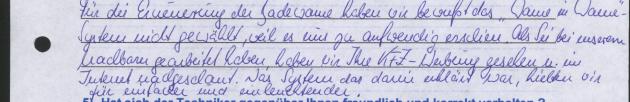 Für die Erneuerung der Badewanne haben wir bewußt das „Wanne in Wanne"-
System nicht gewählt, weil es uns zu aufwendig erschien. Als Sie bei unserem
Nachbarn gearbeitet haben, haben wir Ihre KFZ-Werbung gesehen u. im
Internet nachgeschaut. Das System das darin erklärt war, hielten wir
für einfacher und einleuchtender.
5) Hat sich der Techniker gegenüber Ihnen freundlich und korrekt verhalten ?